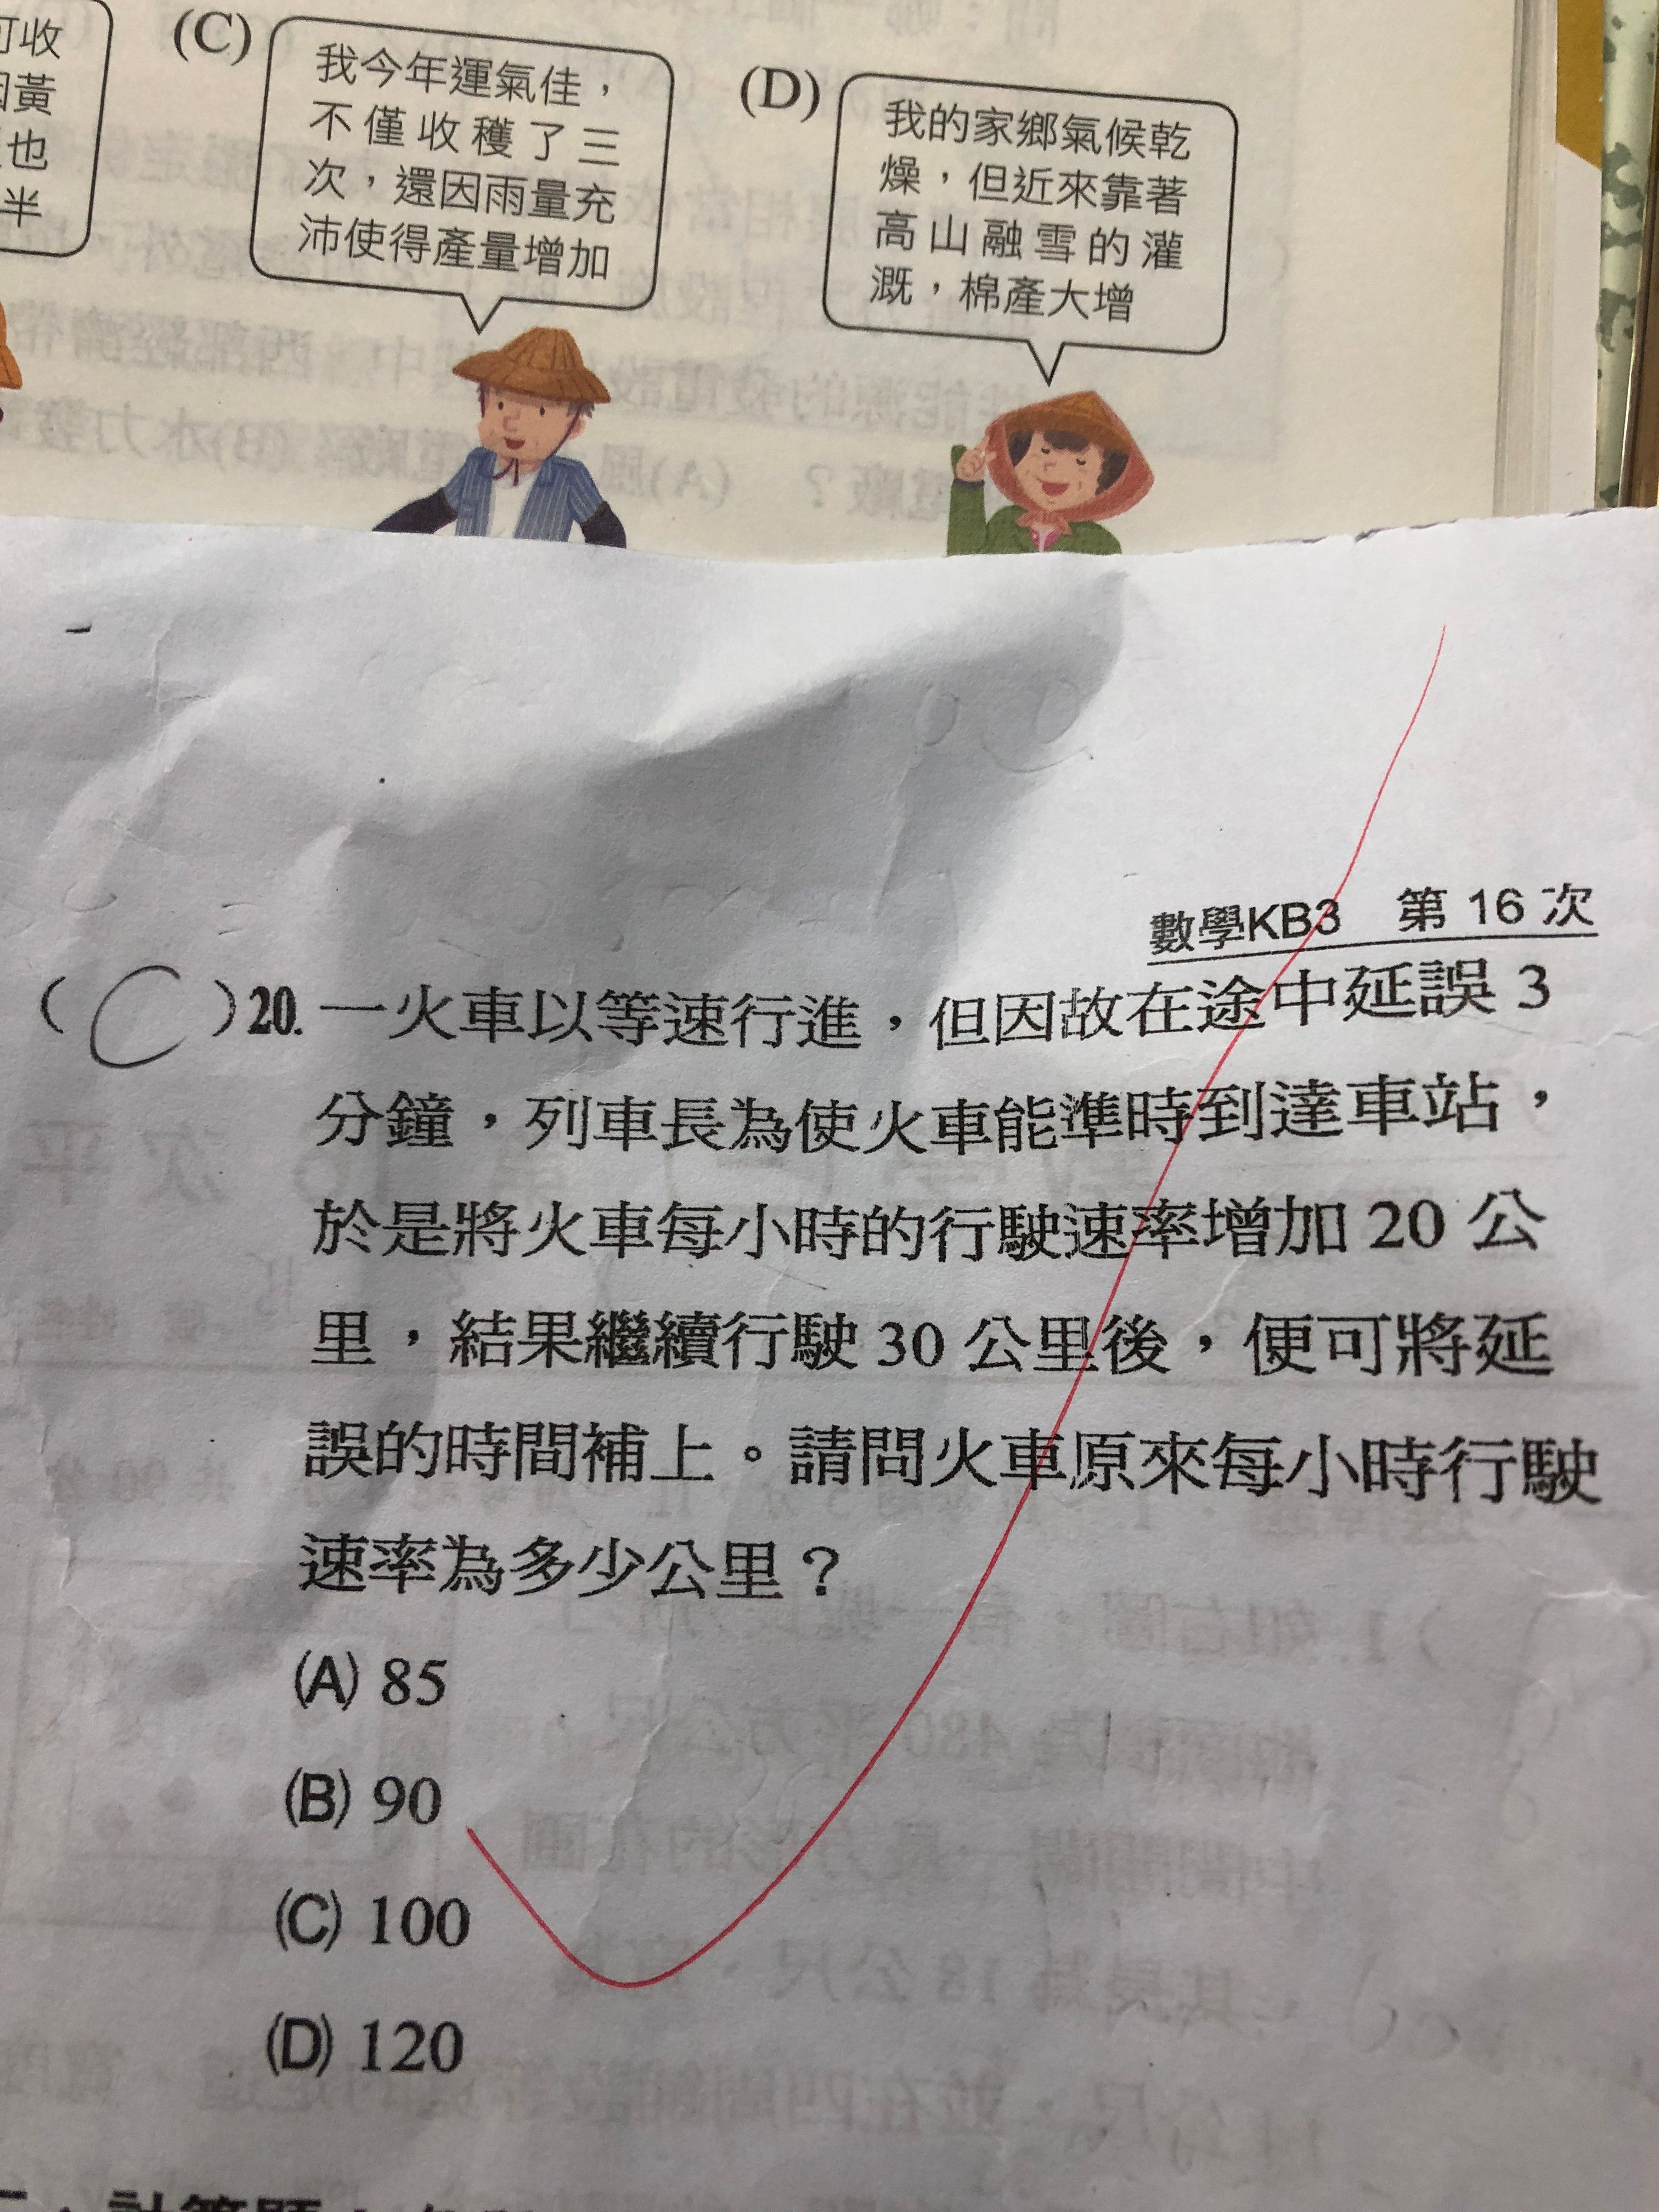 可收
因黃
也
半
(C)
我今年運氣佳，
不僅收穫了三
次，還因雨量充
沛使得產量增加
(D)
我的家鄉氣候乾
燥，但近來靠著
高山融雪的灌
溉，棉產大增
數學KB3 第 16 次
( C )20. 一火車以等速行進，但因故在途中延誤 3
分鐘，列車長為使火車能準時到達車站，
於是將火車每小時的行駛速率增加 20 公
里，結果繼續行駛 30 公里後，便可將延
誤的時間補上。請問火車原來每小時行駛
速率為多少公里？
(A) 85
(B) 90
(C) 100
(D) 120